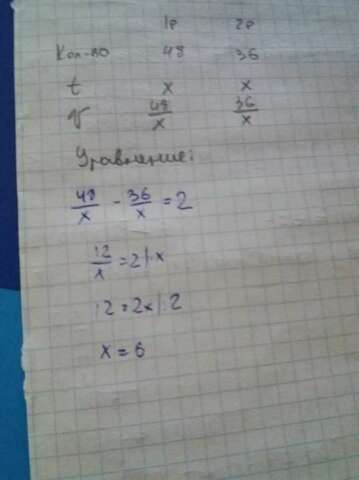 1р 2р
Кол-во 48 36
t x x
v 48/x 36/x
Уравнение:
48/x - 36/x = 2
12/x = 2 |·x
12 = 2x |:2
x = 6